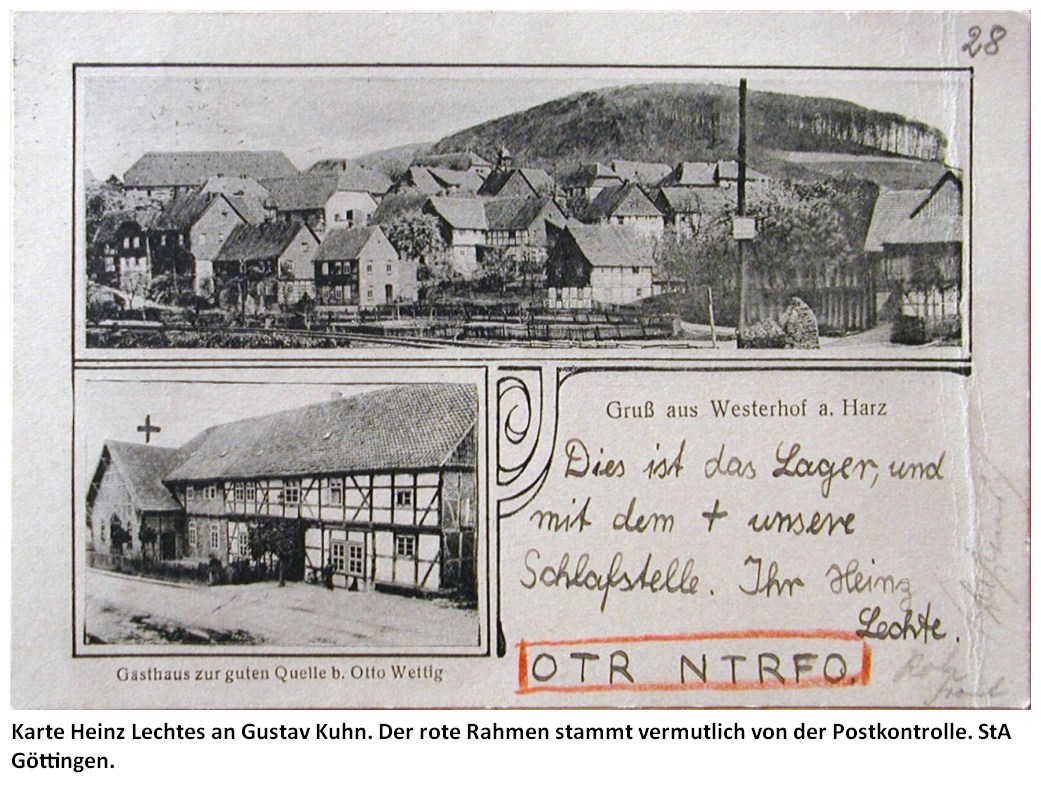 28
Gruß aus Westerhof a. Harz
Dies ist das Lager, und
mit dem + unsere
Schlafstelle. Ihr Heinz
Lechte.
OTR NTRFO.
Gasthaus zur guten Quelle b. Otto Wettig
Karte Heinz Lechtes an Gustav Kuhn. Der rote Rahmen stammt vermutlich von der Postkontrolle. StA
Göttingen.